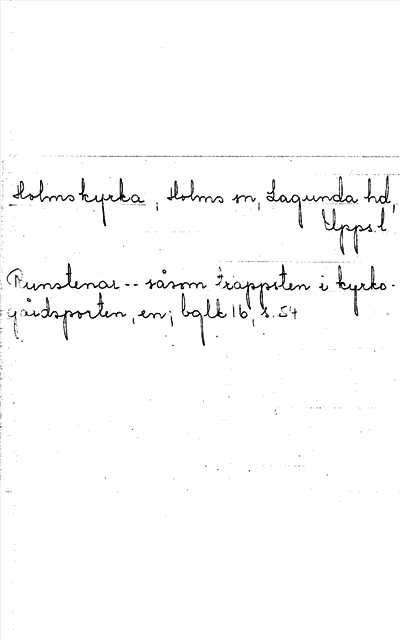 Holms kyrka, Holms sn, Lagunda hd,
Upps.l.
Runstenar -- såsom trappsten i kyrko-
gårdsporten, en; bqlk 16, s. 54